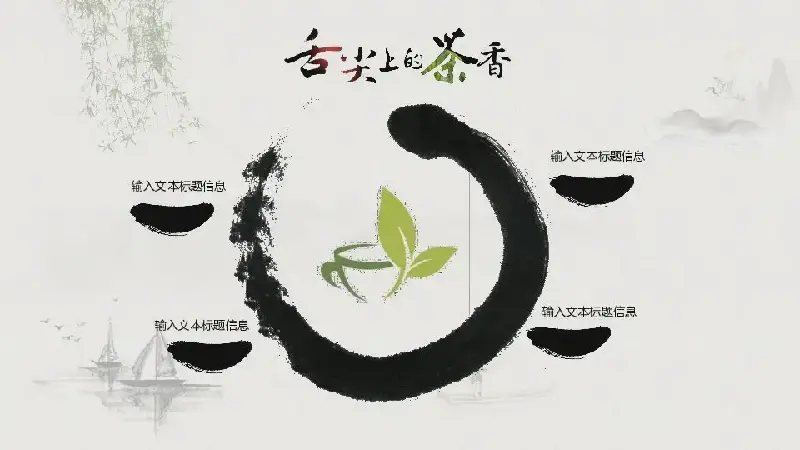 舌尖上的茶香
输入文本标题信息
输入文本标题信息
输入文本标题信息
输入文本标题信息